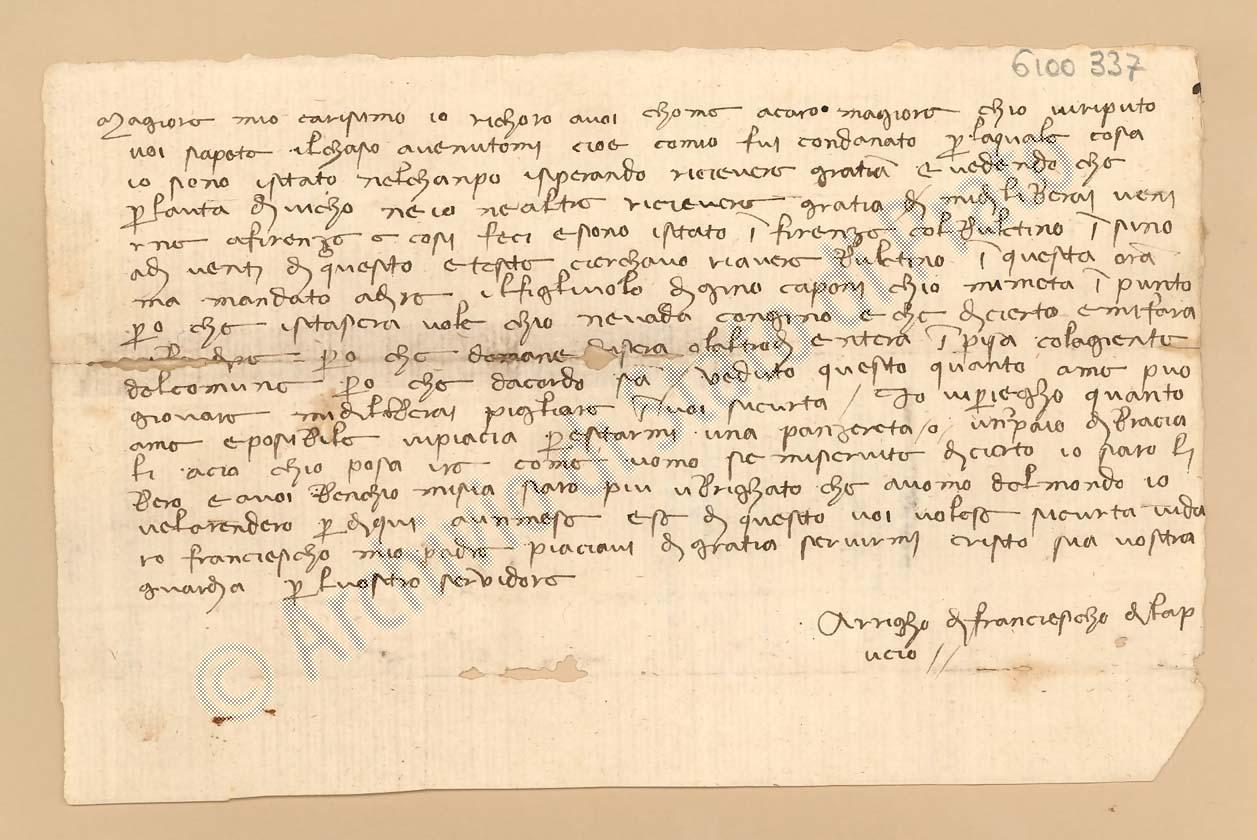 6100 337
Magiore mio carisimo io richoro avoi chome acaro magiore chio viriputo
voi sapete ilchaso avenutomi cioe comio fui condanato p laquale cosa
io sono istato nelchanpo isperando ricievere gratia e vedendo che
p lauta di vicho ne io ne altre ricievere gratia di mi diliberai veni
rne afirenze e cosi feci esono istato i firenze col buletino i sino
adi venti di questo e teste cierchavo riavere buletino i questa ora
ma mandato adire ilfiglivolo di gino caponi chio mimeta i punto
po che istasera vole chio nevada congino e che dicierto emifara
po che domane disera olaltrodi entera i pisa colagiente
delcomune po che dacordo sia veduto questo quanto ame puo
giovare mi diliberai pigliare i voi sicurta / Io vipriegho quanto
ame e posibile vipiacia prestarmi una panzereta / o / un paio di bracia
li acio chio posa ire come uomo se miservite dicierto io siaro li
bero e avoi benchio misia siaro piu ubrighato che auomo delmondo io
velarendero p diqui aunmese ese di questo voi volese sicurta vida
ro franciescho mio padre piaciavi di gratia servirmi cristo sia vostra
guardia p lvostro servidore
Arrigho di franciescho di lap
ucio //
© Archivio di Stato di Prato